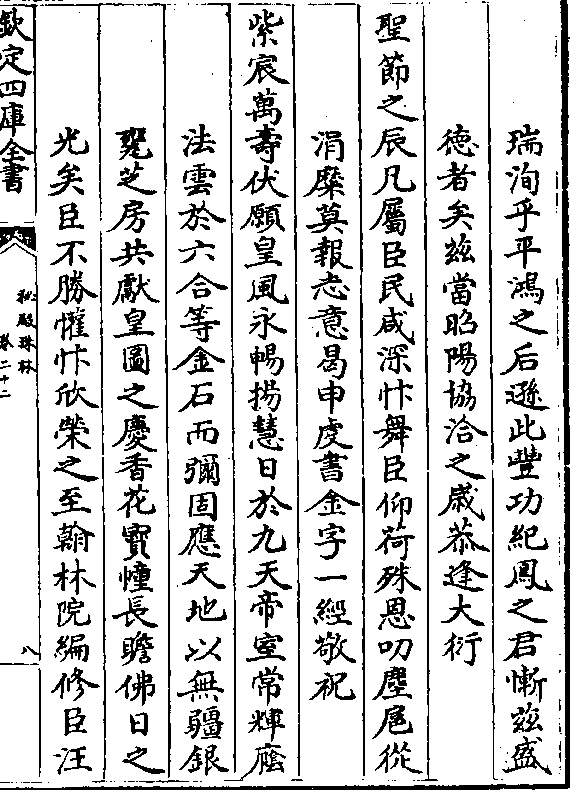 瑞洵乎平鴻之后遜此豐功紀鳳之君慚兹盛
德者矣兹當昭陽協洽之歲恭逢大衍
聖節之辰凡屬臣民咸深忭舞臣仰荷殊恩叨塵扈從
涓糜莫報志意曷申虔書金字一經敬祝
紫宸萬壽伏願皇風永暢揚慧日於九天帝室常輝廕
法雲於六合等金石而彌固應天地以無疆銀
甖芝房共獻皇圖之慶香花寶幢長瞻佛日之
光矣臣不勝懽忭欣榮之至翰林院編修臣汪
欽定四庫全書
秘殿珠林
卷二十二
八